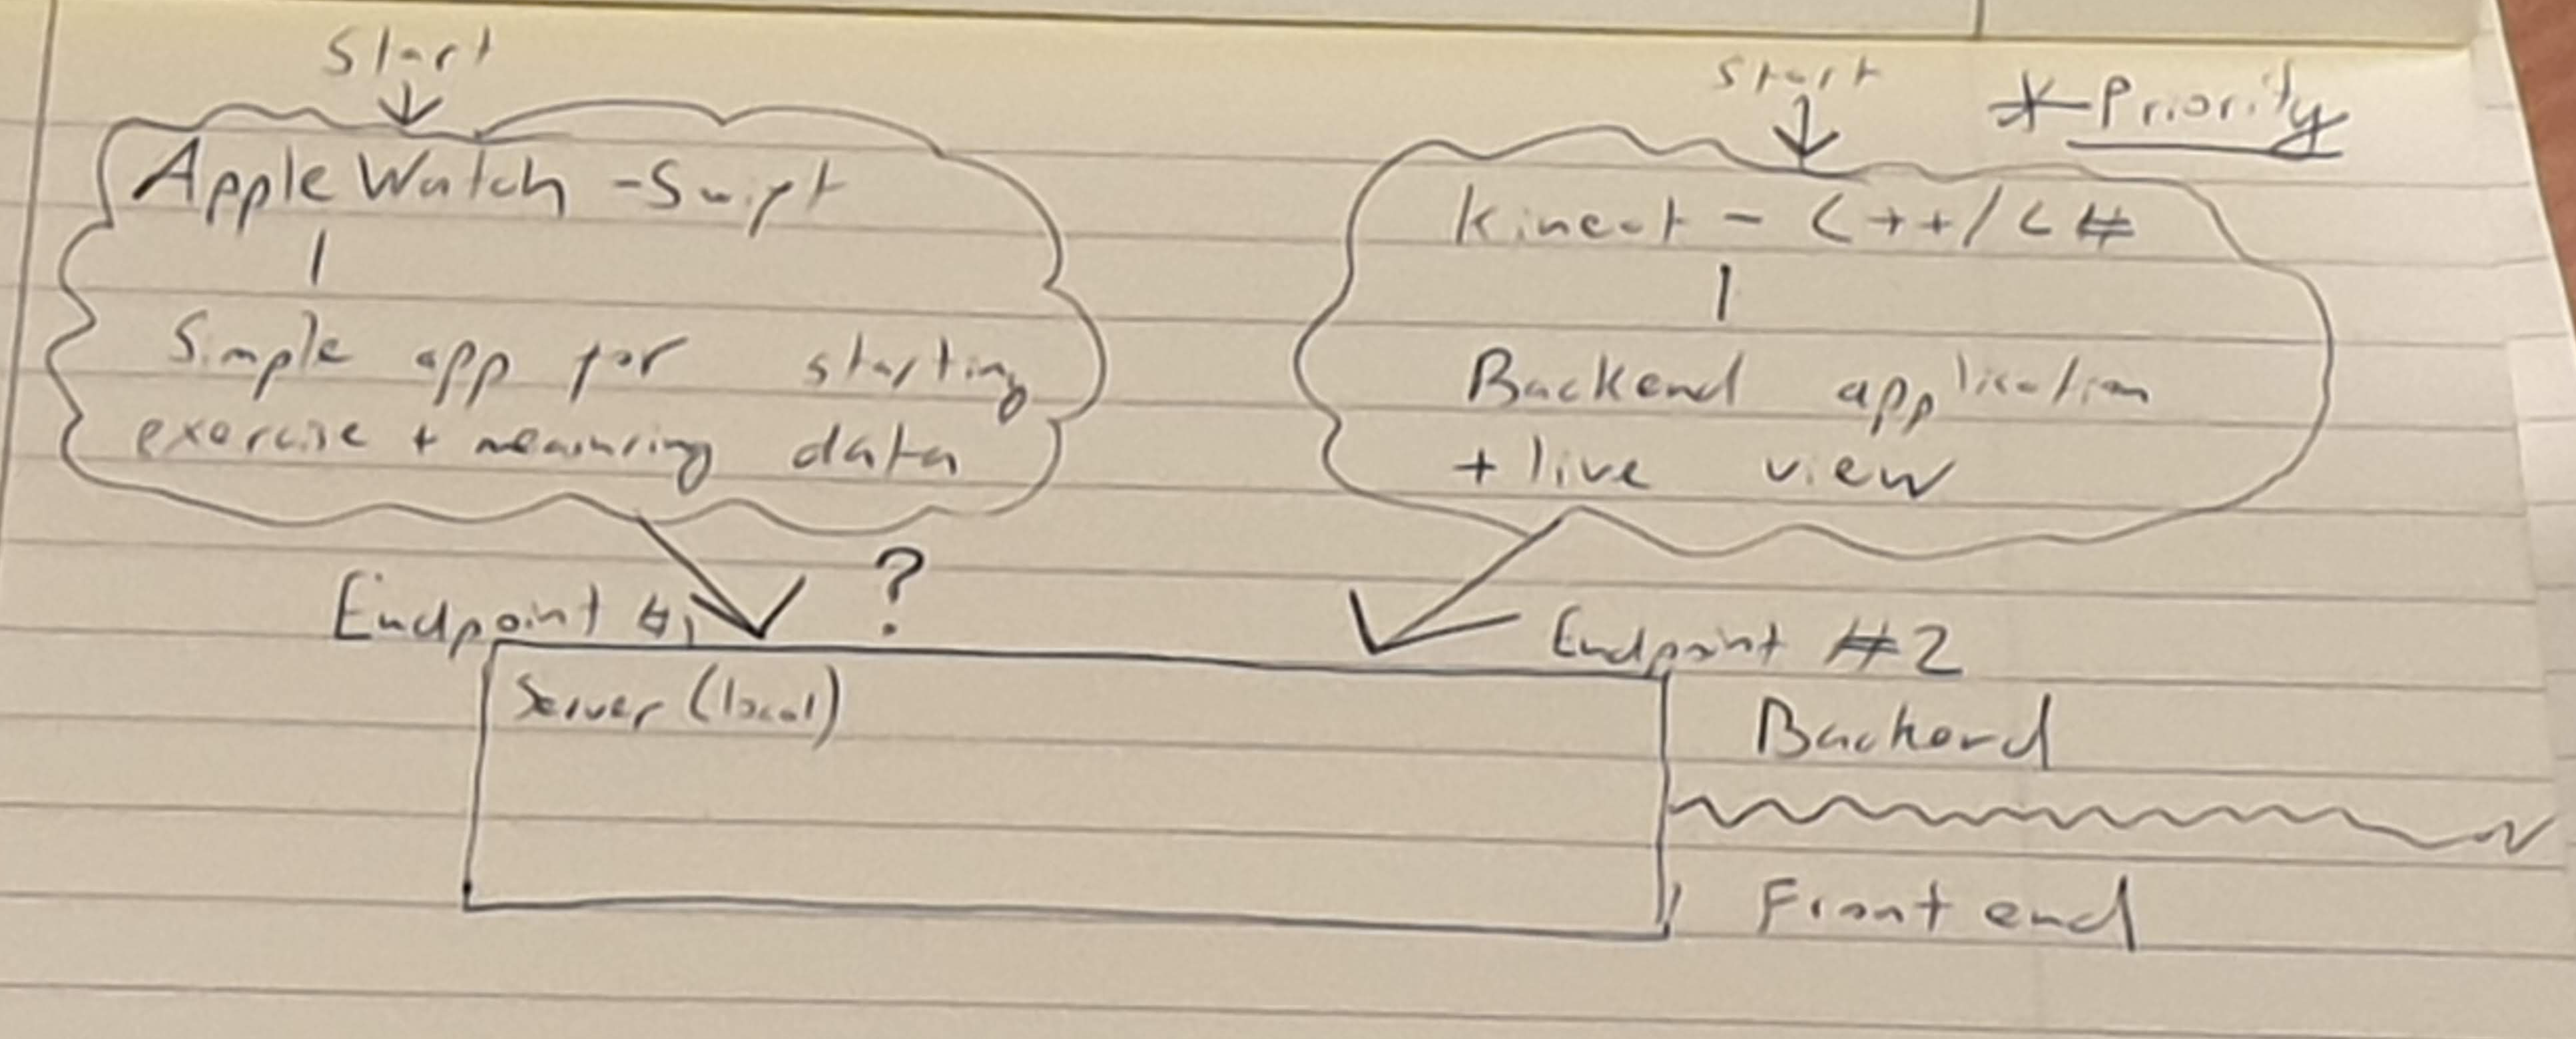 Start
Apple Watch - Swift
Simple app for starting
exercise + measuring data
Start
* Priority
Kinect - C++/C#
Backend application
+ live view
Endpoint #1
?
Endpoint #2
Server (local)
Backend
Frontend